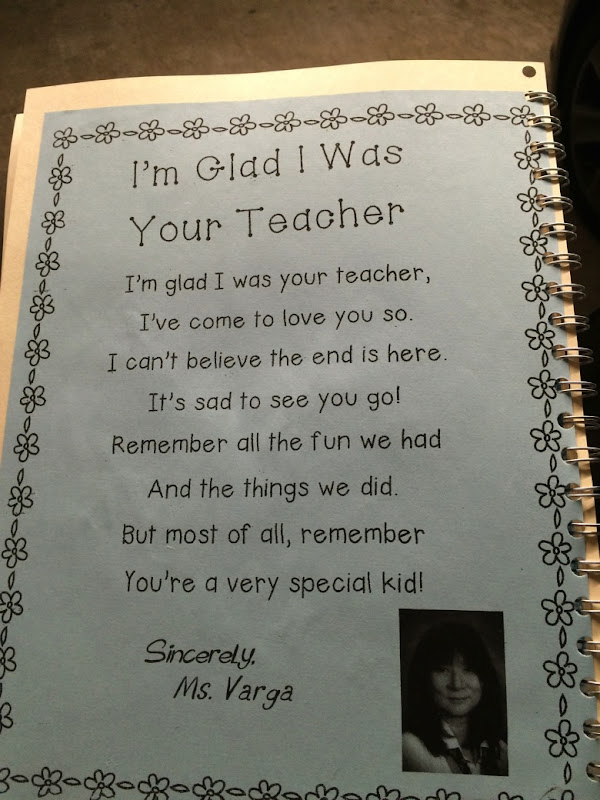 I'm Glad I Was
Your Teacher
I'm glad I was your teacher,
I've come to love you so.
I can't believe the end is here.
It's sad to see you go!
Remember all the fun we had
And the things we did.
But most of all, remember
You're a very special kid!
Sincerely,
Ms. Varga